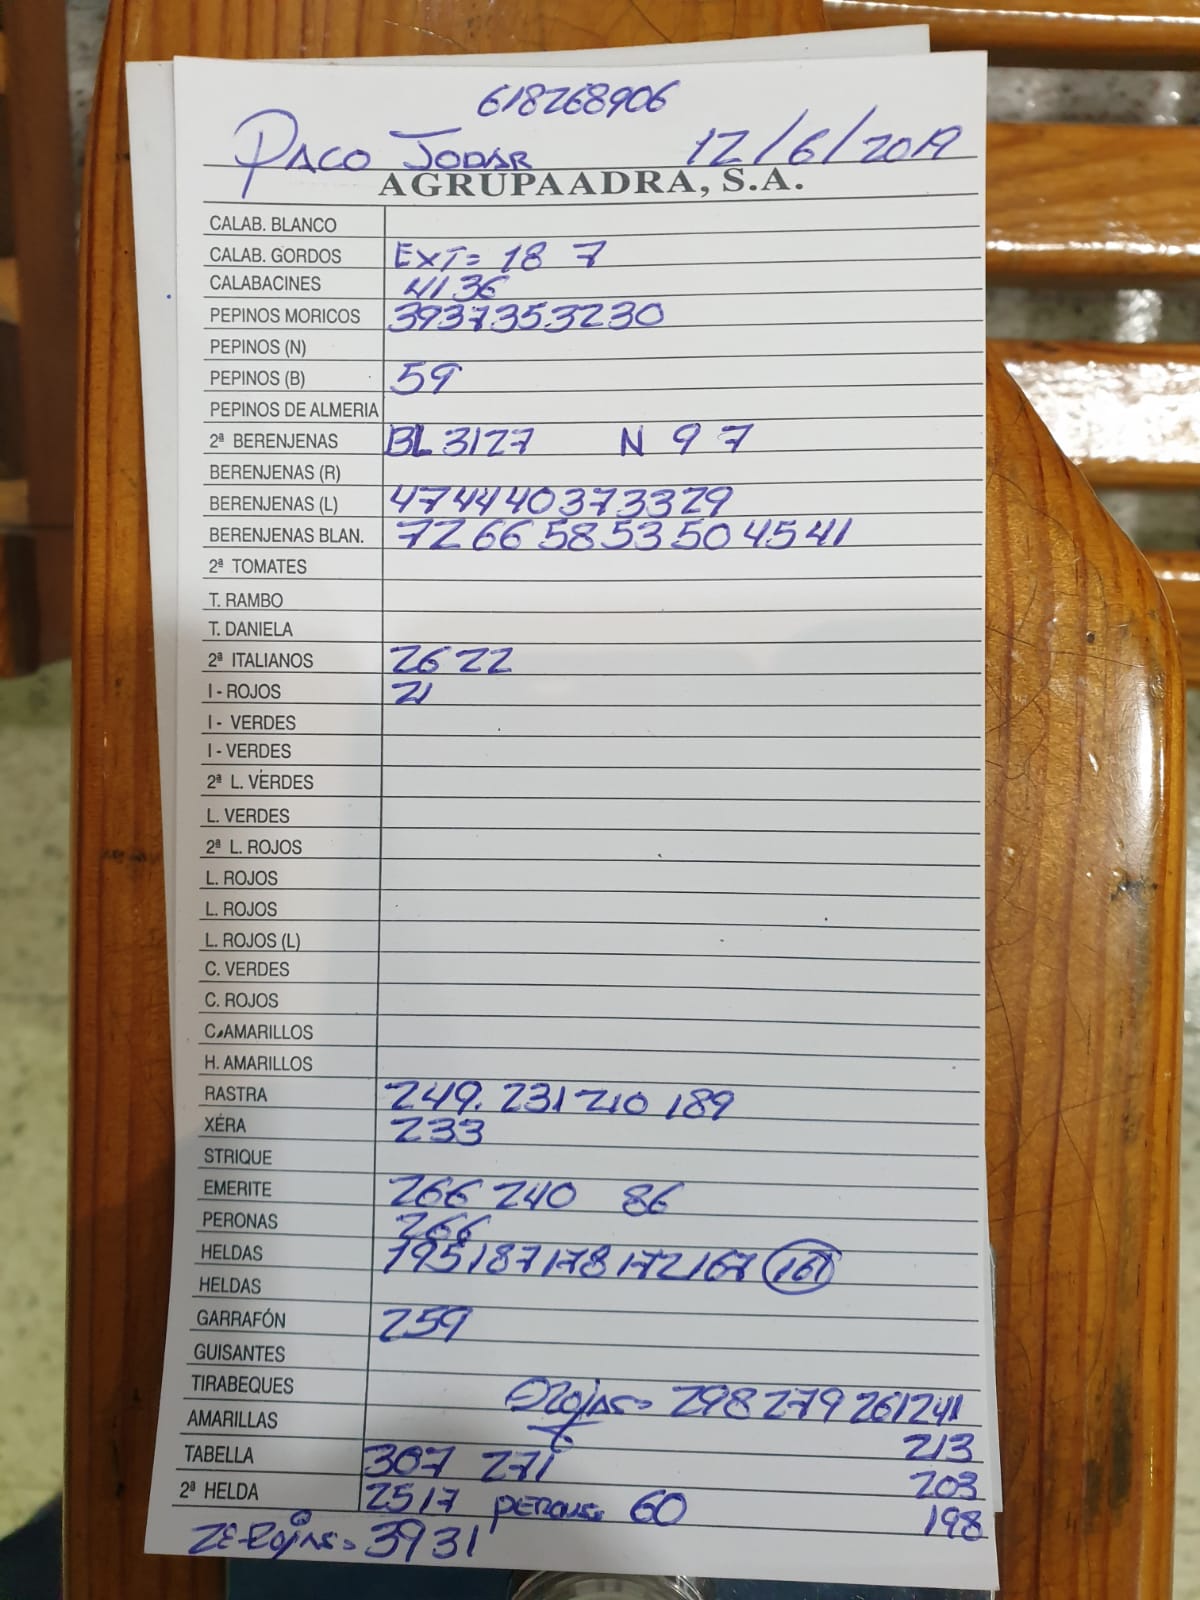 618268906
PACO JODAR 12/6/2019
AGRUPAADRA, S.A.
CALAB. BLANCO
CALAB. GORDOS EXT= 18 7
CALABACINES 41 36
PEPINOS MORICOS 39 37 35 32 30
PEPINOS (N)
PEPINOS (B) 59
PEPINOS DE ALMERIA
2ª BERENJENAS BL 31 27 N 9 7
BERENJENAS (R)
BERENJENAS (L) 47 44 40 37 33 29
BERENJENAS BLAN. 72 66 58 53 50 45 41
2ª TOMATES
T. RAMBO
T. DANIELA
2ª ITALIANOS 26 22
I - ROJOS 21
I - VERDES
I - VERDES
2ª L. VERDES
L. VERDES
2ª L. ROJOS
L. ROJOS
L. ROJOS
L. ROJOS (L)
C. VERDES
C. ROJOS
C. AMARILLOS
H. AMARILLOS
RASTRA 249. 231 210 189
XÉRA 233
STRIQUE
EMERITE 266 240 86
PERONAS 266
HELDAS 195 187 178 172 167 161
HELDAS
GARRAFÓN 259
GUISANTES
TIRABEQUES ROJAS= 298 279 261 241
AMARILLAS 213
TABELLA 307 271 203
2ª HELDA 25 17 PERONAS 60 198
2ª ROJAS= 39 31